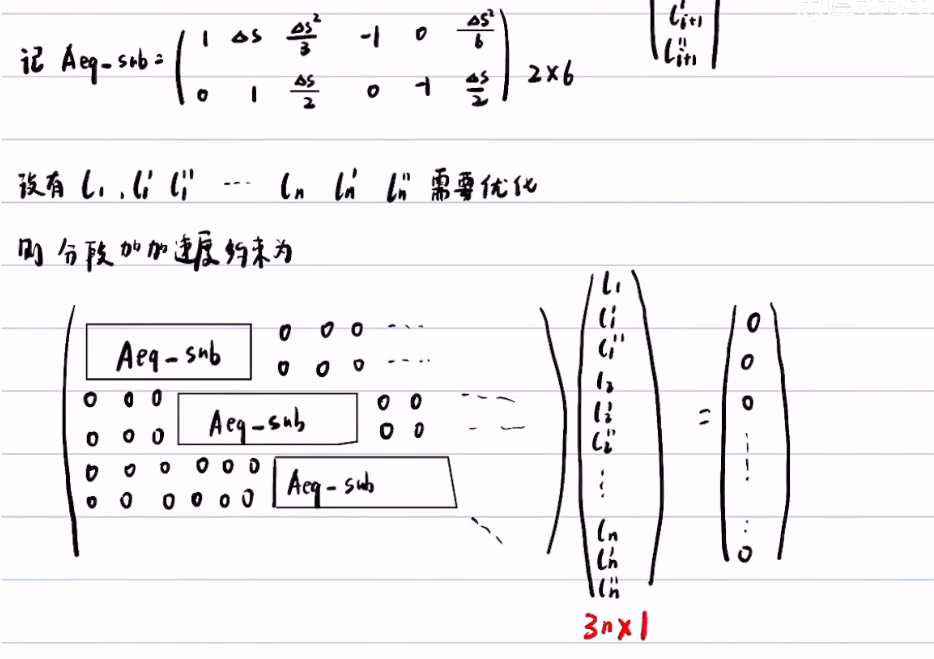 l'ᵢ₊₁
l''ᵢ₊₁
记 Aeq-sub = ( 1 Δs Δs²/3 -1 0 Δs²/6
0 1 Δs/2 0 -1 Δs/2 ) 2×6
设有 l₁, l₁' l₁'' ... lₙ lₙ' lₙ'' 需要优化
则 分段加加速度约束为
Aeq-sub 0 0 0 ...
0 0 0 ....
0 0 0 Aeq-sub 0 0 ...
0 0 0 0 0 ...
0 0 0 0 0 0 Aeq-sub
0 0 0 0 0 0
⋱
l₁
l₁'
l₁''
l₂
l₂'
l₂''
⋮
lₙ
lₙ'
lₙ''
=
0
0
0
⋮
0
3n×1